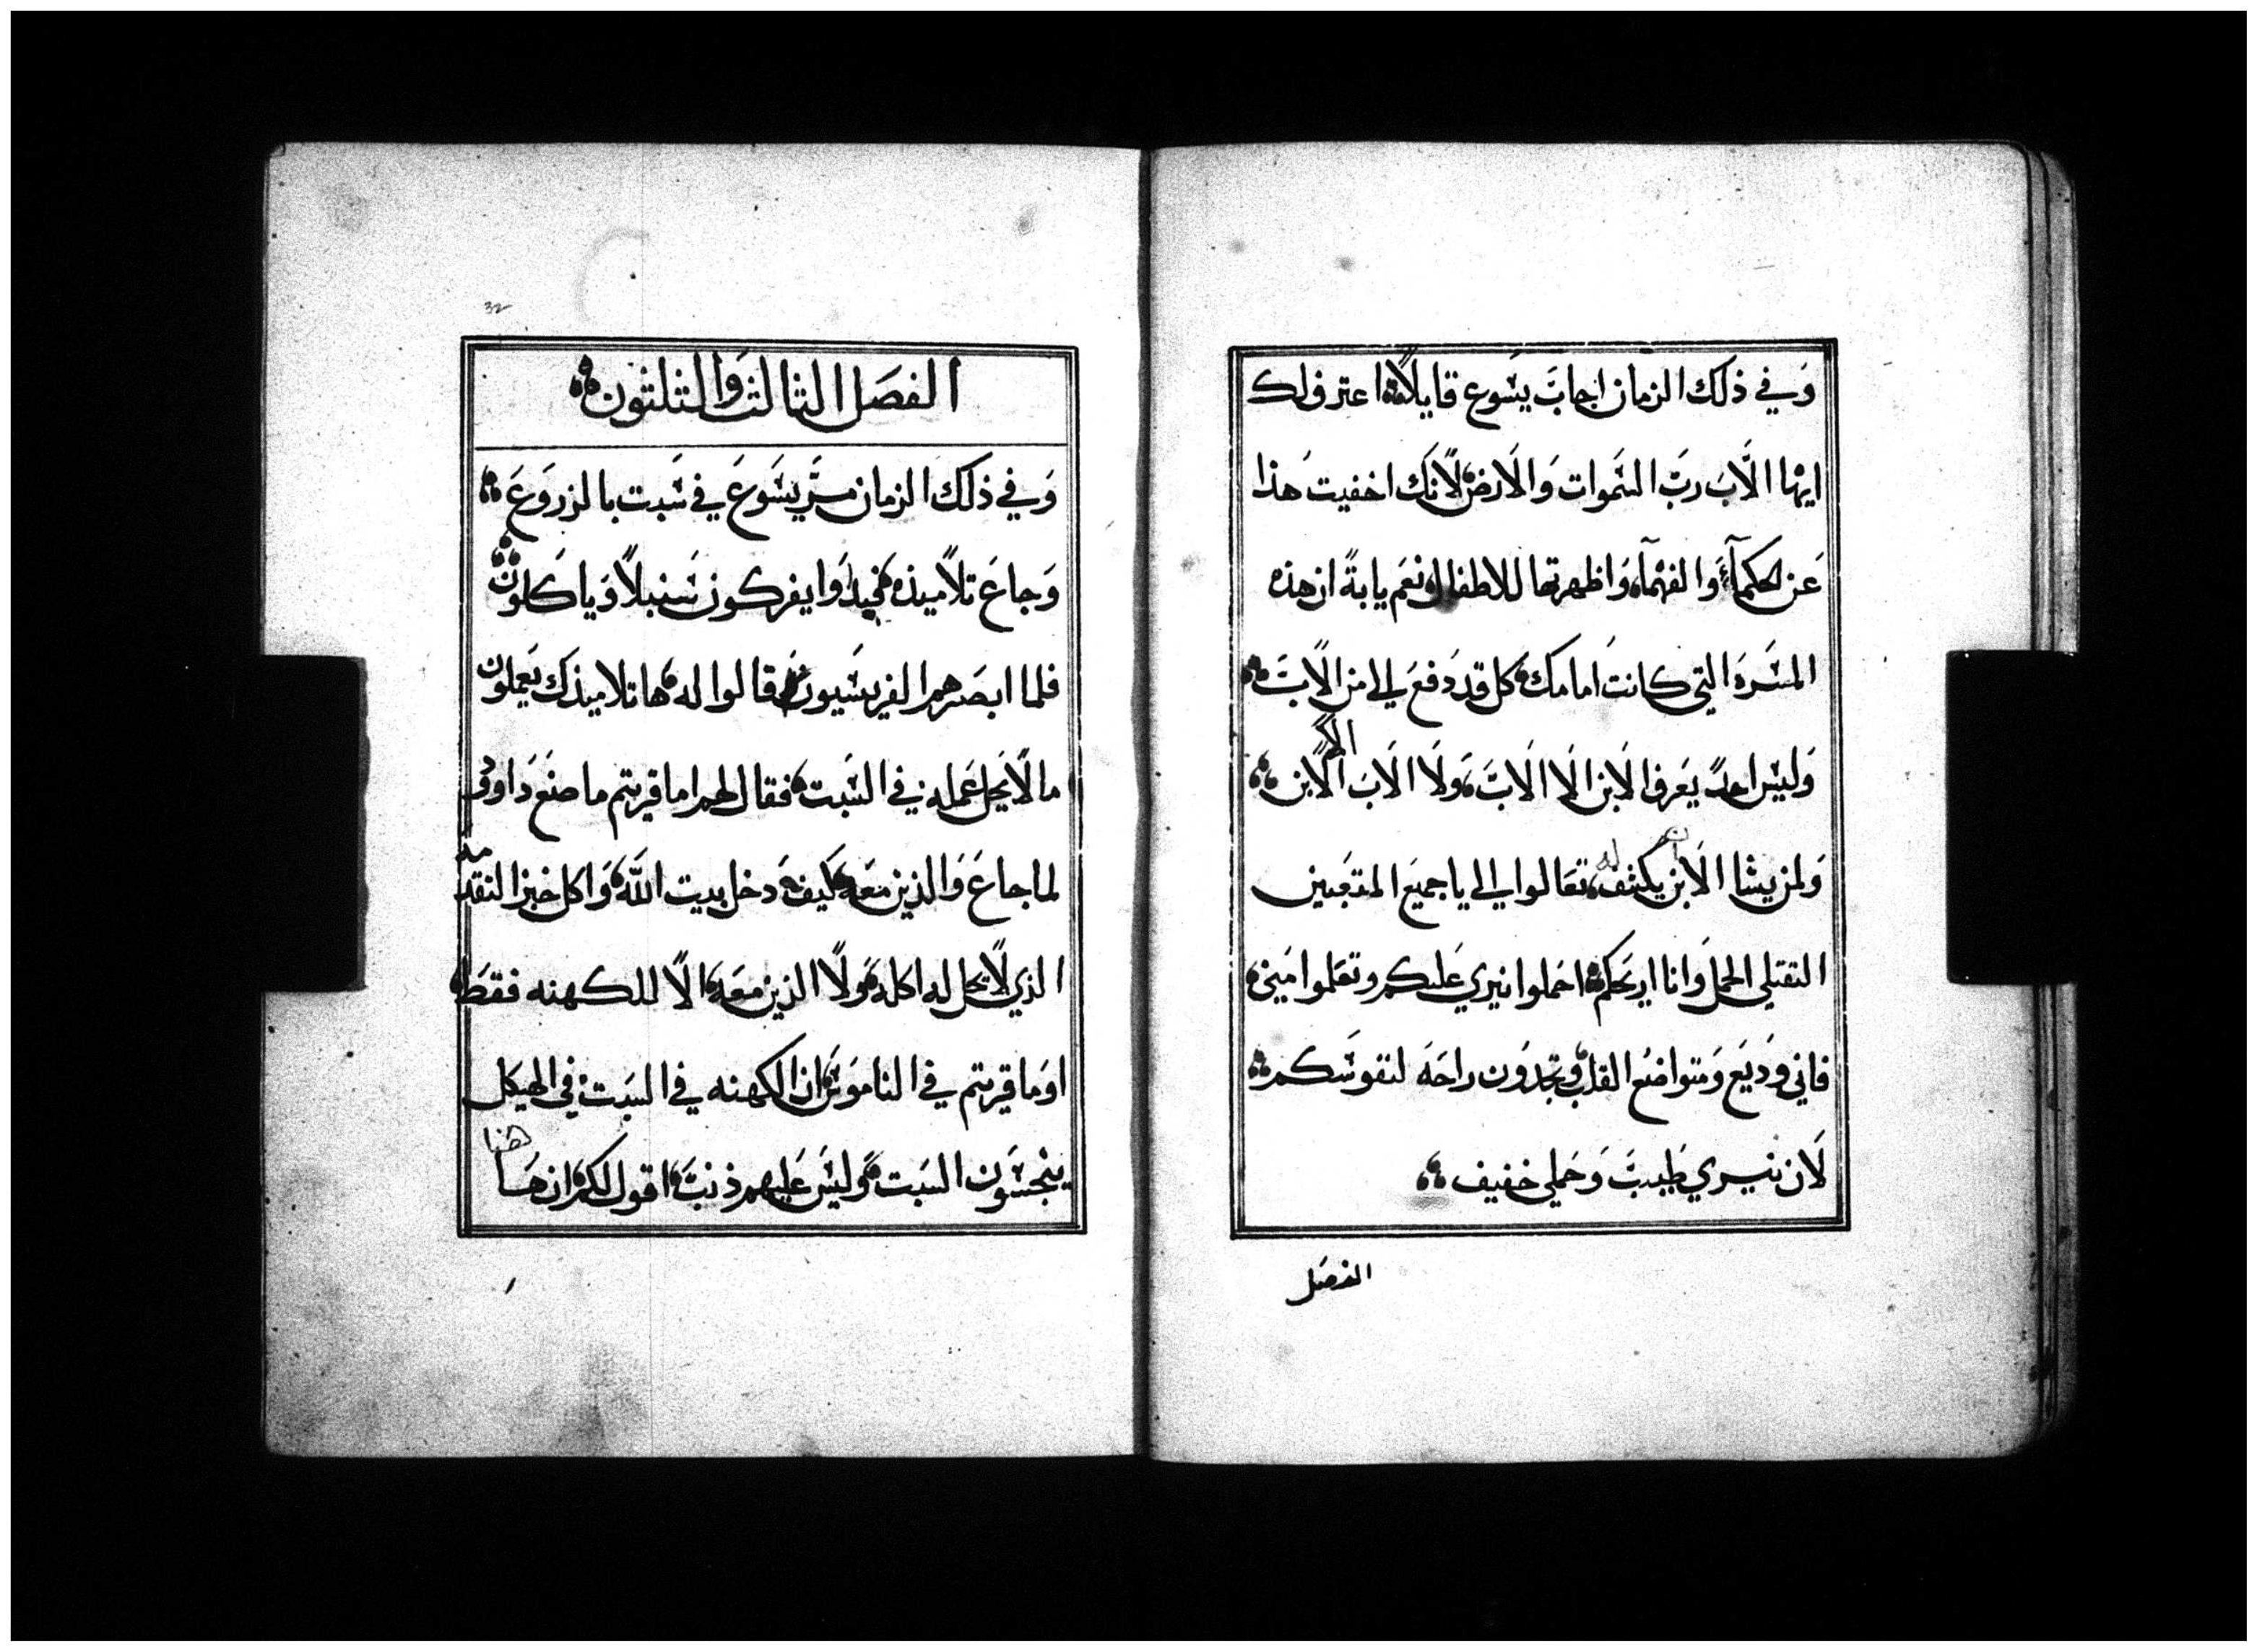 وَفي ذلك الزمان اجابَ يسَوع قايلاً اعترف لك
ايها الاَب ربَ السَموات وَالاَرض لاَنك اخفيت هَذا
عَن الحكمآء وَالفهمآء وَاظهرتها للاطفال نعَم يا ابة ان هذه
المسَرة التي كانت امامك كل قد دَفعَ الي من الاَب
الا
وَليسَ احدً يَعرف الاَبن الاَ الاَبَ وَلاَ الاَبَ الاَبن
له
وَلمن يشا الاَبن يكشف تعَالوا الي يا جميعَ المتعَبين
الثقيلي الحمل وَانا اريَحكم احمَلوا نيري عَليكم وتعَلموا مني
فاني وَديَع وَمتواضعُ القلب وتجدوُن راحَة لنفوسَكم
لاَن نيري طَيبَ وَحَملي خفيف
الفصَل
32
الفصَل الثالث وَالثلثون
وَفي ذلك الزمان مشَي يسَوعَ في سَبت بالزروَعَ
وَجاعَ تلاَميذه فبدَوا يفركون سَنبلاً وَياكلون
فلما ابصَرهم الفريسَيون قالوا له ها تلاميذك يَعملون
ما لاَ يَحل عَمله في السَبت فقال لهم اما قريتم ما صنعَ دَاوود
لما جاعَ وَالذين معَه كيف دَخل بيت اللَه وَاكل خبز التقدمه
الذي لاَ يحل له اكله وَلاَ الذين معَه الاَ للكهنه فقطَ
اوَما قريتم في الناموَس ان الكهنه في السَبت في الهيكل
هنا
ينجسَون السَبت وَليسَ عَليهم ذنبَ اقول لكم ان هَا